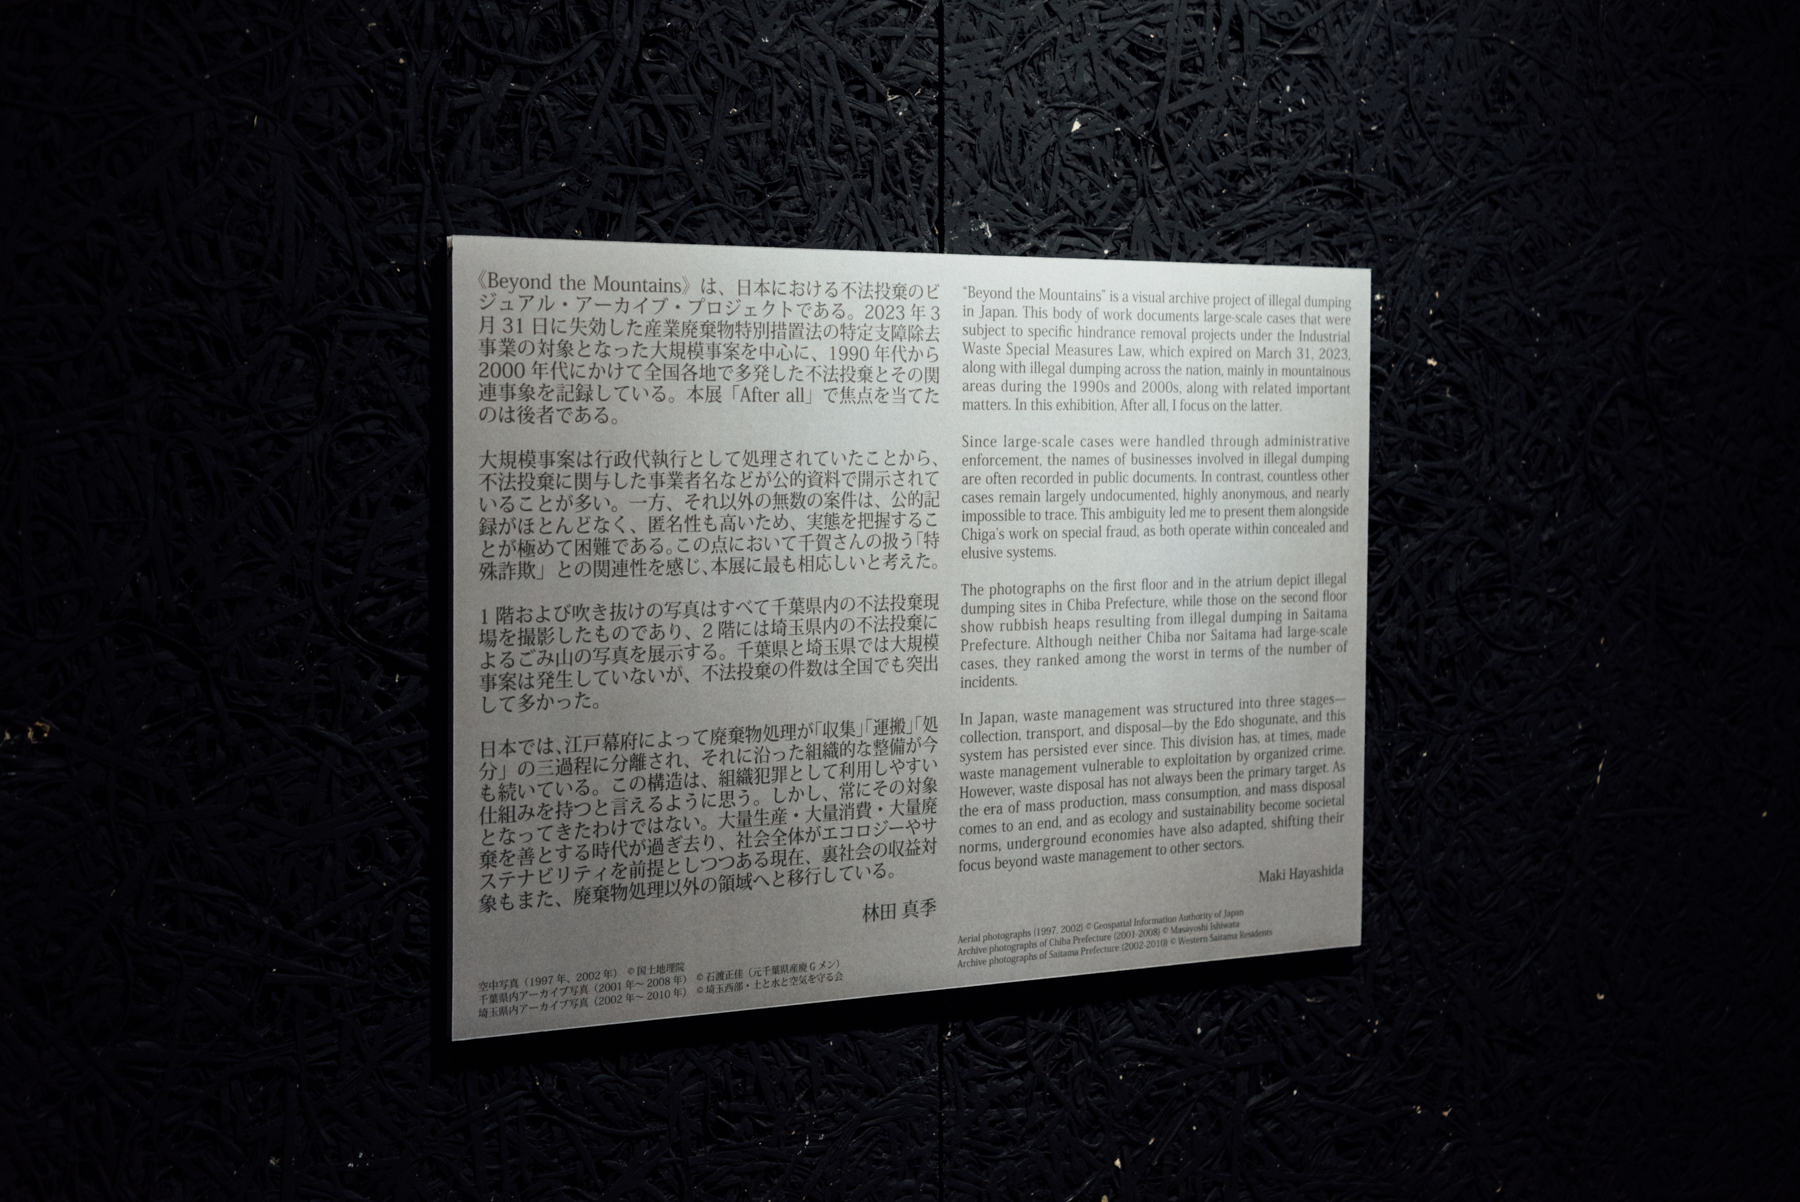 《Beyond the Mountains》は、日本における不法投棄のビ
ジュアル・アーカイブ・プロジェクトである。2023 年 3
月 31 日に失効した産業廃棄物特別措置法の特定支障除去
事業の対象となった大規模事案を中心に、1990 年代から
2000 年代にかけて全国各地で多発した不法投棄とその関
連事象を記録している。本展「After all」で焦点を当てた
のは後者である。
大規模事案は行政代執行として処理されていたことから、
不法投棄に関与した事業者名などが公的資料で開示されて
いることが多い。一方、それ以外の無数の案件は、公的記
録がほとんどなく、匿名性も高いため、実態を把握するこ
とが極めて困難である。この点において千賀さんの扱う「特
殊詐欺」との関連性を感じ、本展に最も相応しいと考えた。
1 階および吹き抜けの写真はすべて千葉県内の不法投棄現
場を撮影したものであり、2 階には埼玉県内の不法投棄に
よるごみ山の写真を展示する。千葉県と埼玉県では大規模
事案は発生していないが、不法投棄の件数は全国でも突出
して多かった。
日本では、江戸幕府によって廃棄物処理が「収集」「運搬」「処
分」の三過程に分離され、それに沿った組織的な整備が今
も続いている。この構造は、組織犯罪として利用しやすい
仕組みを持つと言えるように思う。しかし、常にその対象
となってきたわけではない。大量生産・大量消費・大量廃
棄を善とする時代が過ぎ去り、社会全体がエコロジーやサ
ステナビリティを前提としつつある現在、裏社会の収益対
象もまた、廃棄物処理以外の領域へと移行している。
林田 真季
空中写真（1997 年、2002 年） © 国土地理院
千葉県内アーカイブ写真（2001 年〜 2008 年） © 石渡正佳（元千葉県産廃 G メン）
埼玉県内アーカイブ写真（2002 年〜 2010 年） © 埼玉西部・土と水と空気を守る会
“Beyond the Mountains” is a visual archive project of illegal dumping
in Japan. This body of work documents large-scale cases that were
subject to specific hindrance removal projects under the Industrial
Waste Special Measures Law, which expired on March 31, 2023,
along with illegal dumping across the nation, mainly in mountainous
areas during the 1990s and 2000s, along with related important
matters. In this exhibition, After all, I focus on the latter.
Since large-scale cases were handled through administrative
enforcement, the names of businesses involved in illegal dumping
are often recorded in public documents. In contrast, countless other
cases remain largely undocumented, highly anonymous, and nearly
impossible to trace. This ambiguity led me to present them alongside
Chiga's work on special fraud, as both operate within concealed and
elusive systems.
The photographs on the first floor and in the atrium depict illegal
dumping sites in Chiba Prefecture, while those on the second floor
show rubbish heaps resulting from illegal dumping in Saitama
Prefecture. Although neither Chiba nor Saitama had large-scale
cases, they ranked among the worst in terms of the number of
incidents.
In Japan, waste management was structured into three stages—
collection, transport, and disposal—by the Edo shogunate, and this
system has persisted ever since. This division has, at times, made
waste management vulnerable to exploitation by organized crime.
However, waste disposal has not always been the primary target. As
the era of mass production, mass consumption, and mass disposal
comes to an end, and as ecology and sustainability become societal
norms, underground economies have also adapted, shifting their
focus beyond waste management to other sectors.
Maki Hayashida
Aerial photographs (1997, 2002) © Geospatial Information Authority of Japan
Archive photographs of Chiba Prefecture (2001-2008) © Masayoshi Ishiwata
Archive photographs of Saitama Prefecture (2002-2010) © Western Saitama Residents